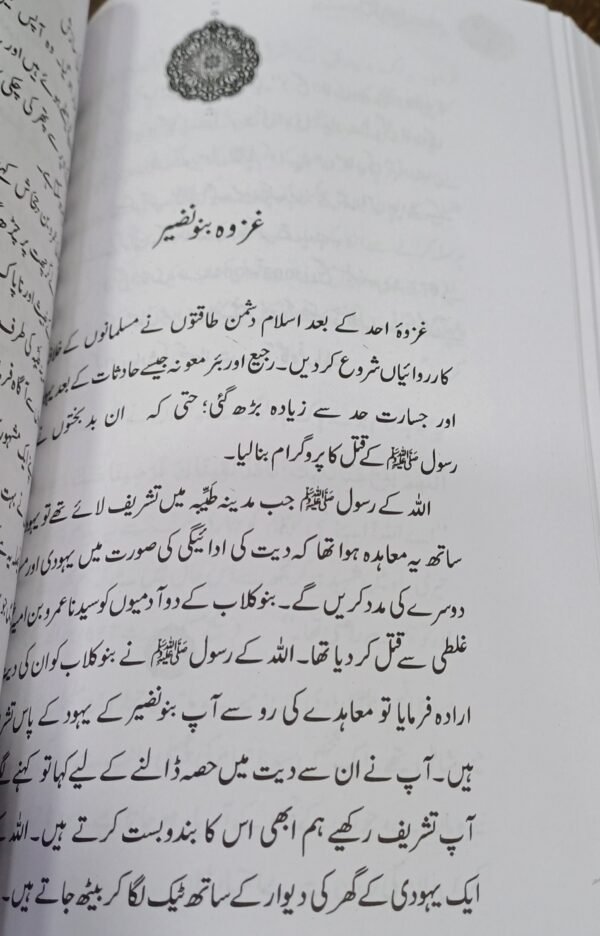 غزوہ بنو نضیر
غزوۂ احد کے بعد اسلام دشمن طاقتوں نے مسلمانوں کے
کارروائیاں شروع کر دیں۔ رجیع اور بئر معونہ جیسے حادثات کے بعد
اور جسارت حد سے زیادہ بڑھ گئی؛ حتی کہ ان بدبختوں
رسول ﷺ کے قتل کا پروگرام بنا لیا۔
اللہ کے رسول ﷺ جب مدینہ طیّبہ میں تشریف لائے تھے تو
ساتھ یہ معاہدہ ہوا تھا کہ دیت کی ادائیگی کی صورت میں یہودی اور
دوسرے کی مدد کریں گے۔ بنو کلاب کے دو آدمیوں کو سیدنا عمرو بن
غلطی سے قتل کر دیا تھا۔ اللہ کے رسول ﷺ نے بنو کلاب کو ان کی
ارادہ فرمایا تو معاہدے کی رو سے آپ بنو نضیر کے یہود کے پاس
ہیں۔ آپ نے ان سے دیت میں حصہ ڈالنے کے لیے کہا تو کہنے
آپ تشریف رکھیے ہم ابھی اس کا بندوبست کرتے ہیں۔ اللہ
ایک یہودی کے گھر کی دیوار کے ساتھ ٹیک لگا کر بیٹھ جاتے ہیں۔